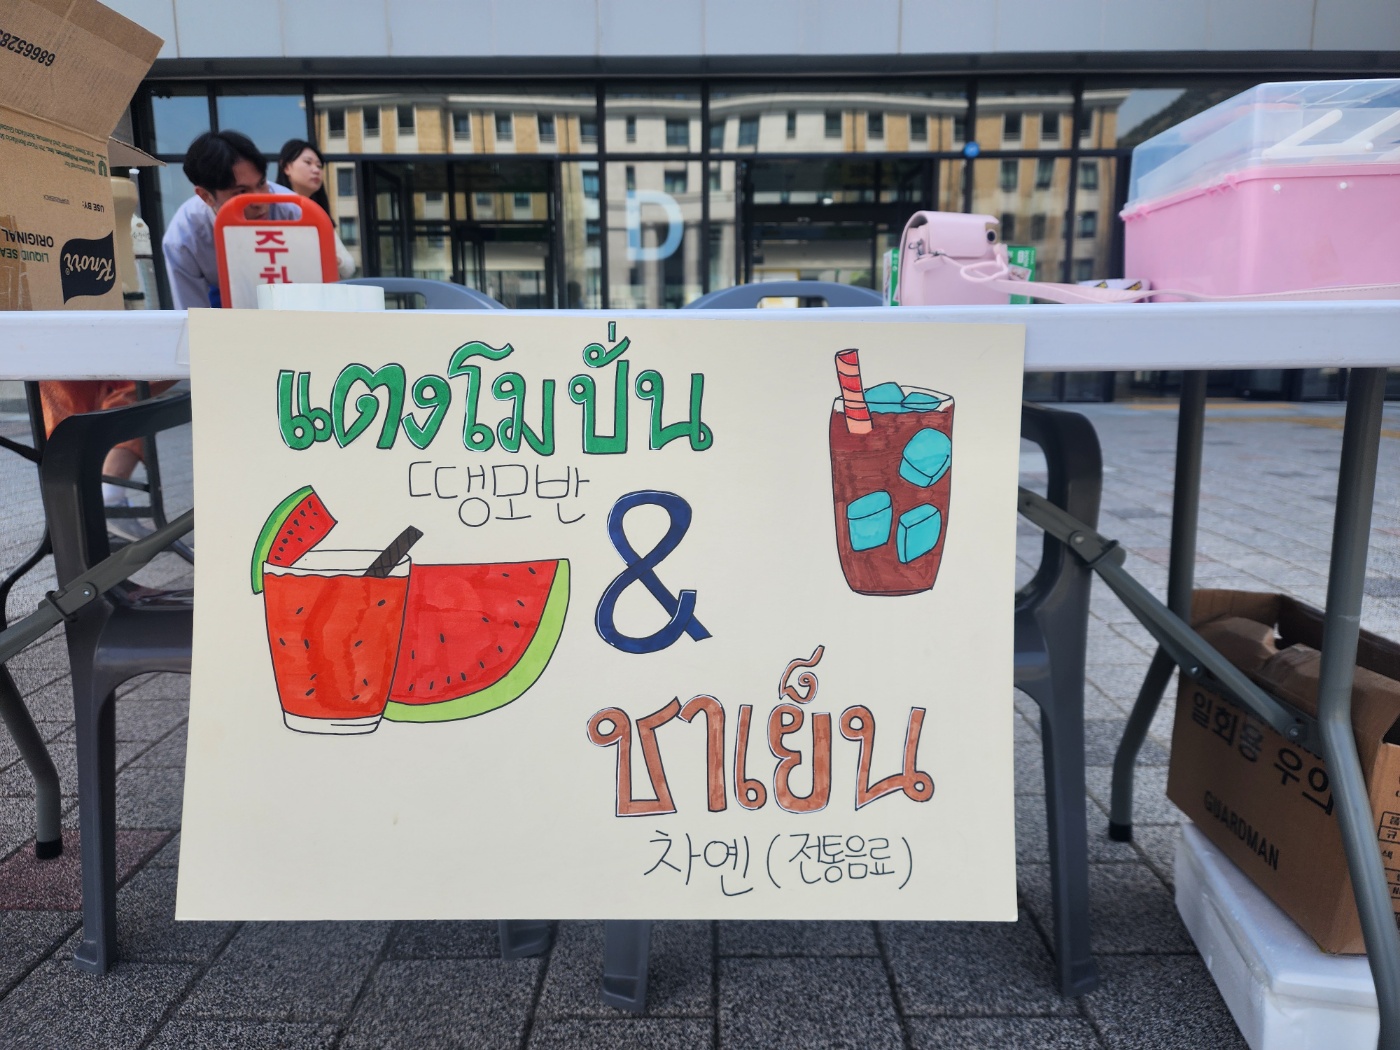 แตงโมปั่น
땡모반
&
ชาเย็น
차옌 (전통음료)
D
주차
Knorr
LIQUID SEA
ORIGINAL
USE BY:
일회용 우의
GUARDMAN